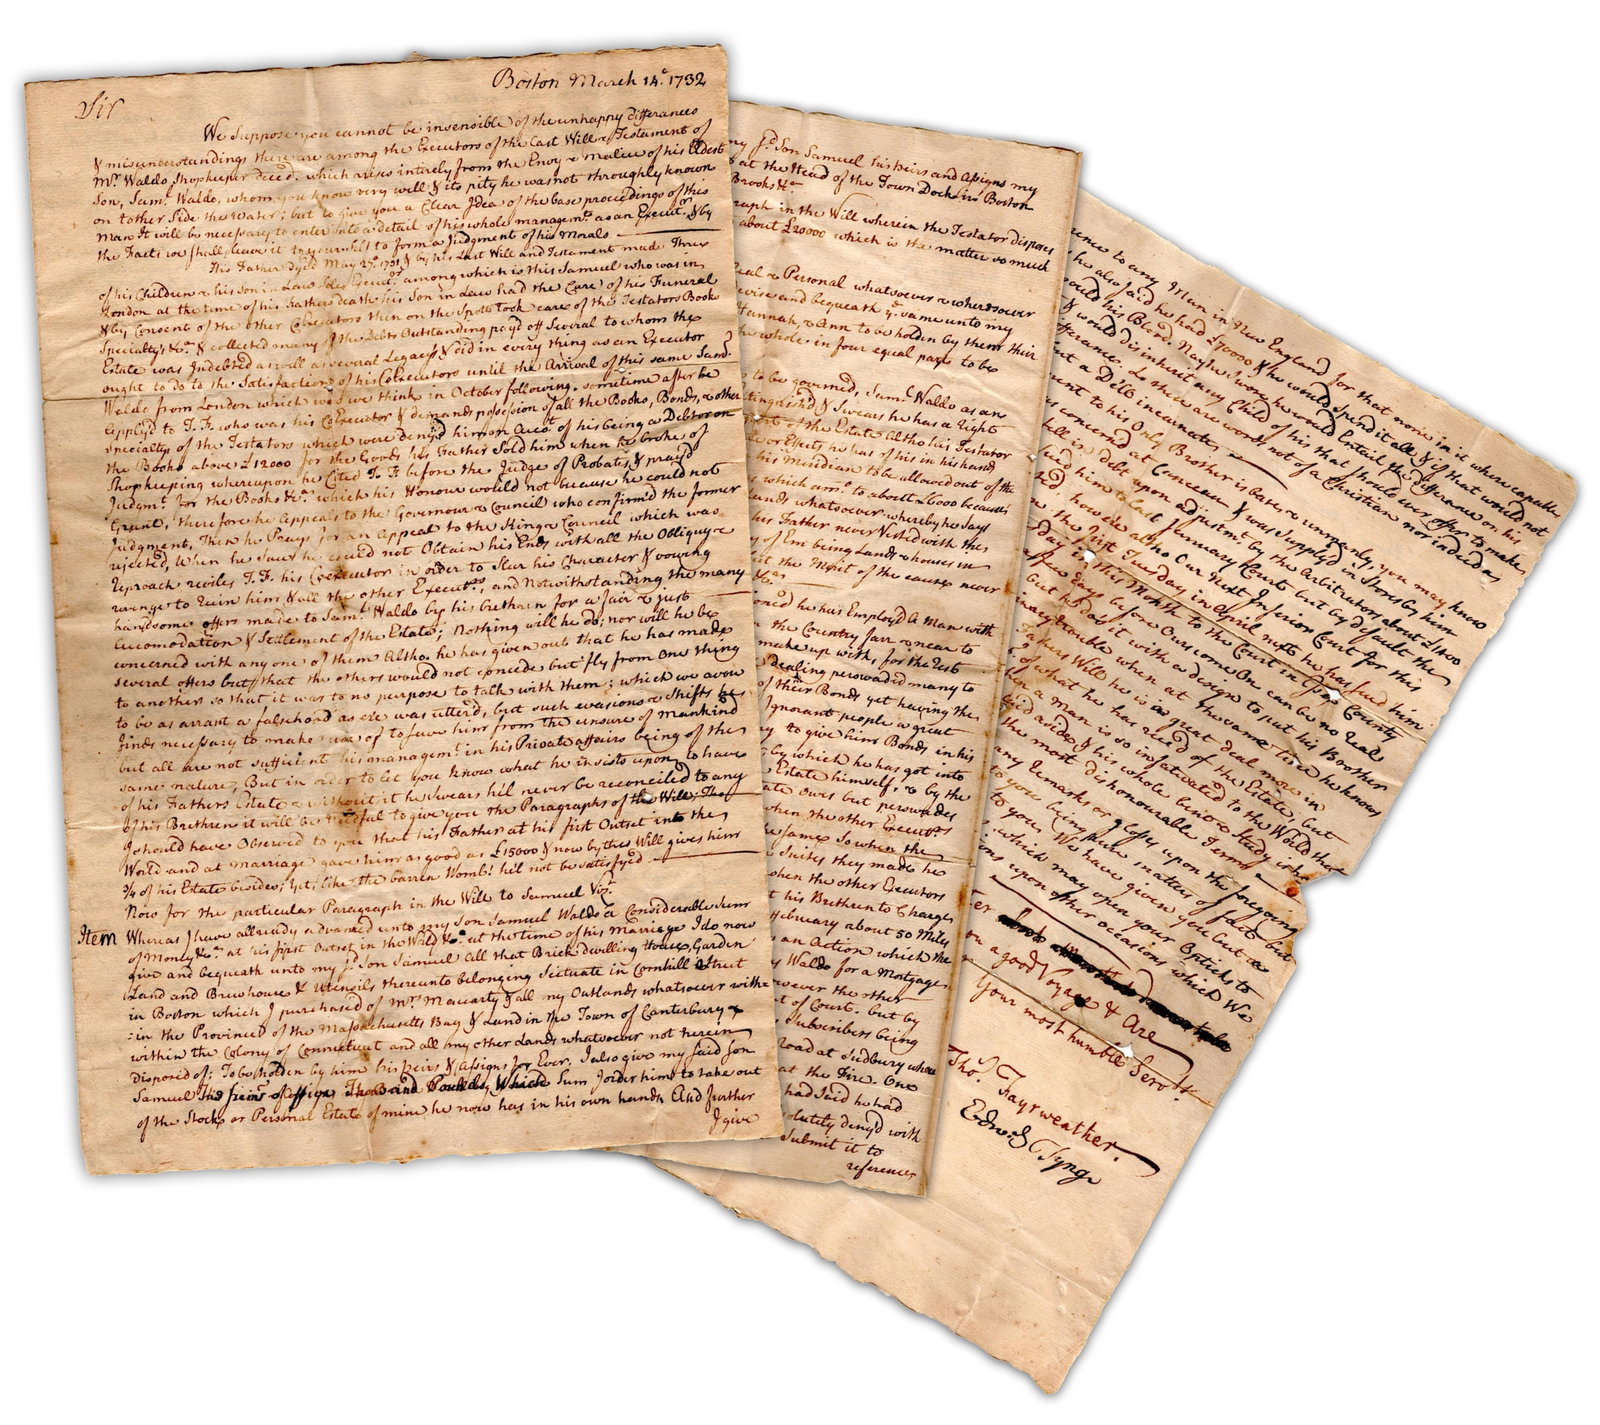 Boston March 14.º 1732
Sir
We Suppose you cannot be insensible of the unhappy differances
& misunderstandings there are among the Executors of the Last Will & Testament of
Mr. Waldo Shopkeeper deced. which arises intirely from the Envy & Malice of his Eldest
Son, Saml. Waldo, whom you know very well & its pity he was not throughly known
on tother Side the Water; but to give you a Clear Idea of the base proceedings of this
man It will be necessary to enter into a detail of his whole managemt. as an Executor, & by
the Facts we shall leave it to yourself to form a Judgment of his Morals
His Father Dyed May 27º. 1731 & by his Last Will and Testament made Three
of his Children & his son in Law Soles Execut.rs among which is this Samuel who was in
London at the time of his Fathers death his Son in Law had the Care of his Funeral
& by Consent of the other CoExecutors then on the Spott Took care of the Testators Books
Specialtys &ca. & collected many of the Debts Outstanding pay'd off Several to whom the
Estate was Indebted as well as several Legacys & did in every thing as an Executor
ought to do to the Satisfaction of his CoExecutors until the Arrival of this same Saml.
Waldo from London which was we think in October following. sometime after he
apply'd to T. F. who was his CoExecutor & demands possession of all the Books, Bonds, & other
specialty of the Testators which were deny'd him on Acct. of his being a Debtor on
the Books above £12000 for the Goods his Father Sold him when he broke of
Shopkeeping whereupon he Cited T. F. before the Judge of Probate & pray'd
Judgmt. for the Books &ca. which his Honour would not because he could not
Grant, therefore he Appeals to the Governour & Council who confirm'd the former
Judgment, Then he Prays for an Appeal to the King & Council which was
rejected, When he Saw he could not Obtain his Ends with all the Obliquy &
reproach reviles T. F. his CoExecutor in order to Slur his Character & vowing
revenge to Ruin him & all the other Executrs., and Notwithstanding the many
handsome offers made to Saml. Waldo by his brethren for a fair & just
Accomodation & Settlement of the Estate; Nothing will he do; nor will he be
concerned with any one of them Altho. he has given out that he has made
several offers but that the others would not concede but fly from One thing
to another so that it was to no purpose to talk with them; which we avow
to be as arrant a falsehood as ere was utter'd, but such evasions & Shifts he
finds necessary to make use of to save him from the censure of mankind
but all are not sufficient his managemt. in his Private affairs being of the
same nature; But in order to let you know what he insists upon to have
of his Fathers Estate & without it he Swears hil never be reconciled to any
of his Brethren it will be needful to give you the Paragraphs of the Will, Tho
I should have Observed to you that his Father at his first Outset into the
World and at Marriage gave him as good as £15000 & now by this Will gives him
of his Estate besides; Yet; like the Barren Womb: hil not be satisfyed
Now for the particular Paragraph in the Will to Samuel Vizt.
Item Whereas I have allready advanced unto my Son Samuel Waldo a Considerable Sum
of Mony &ca. at his first Outset in the World & at the time of his Marriage I do now
give and bequeath unto my sd. Son Samuel all that Brick dwelling House, Garden
Land and Brewhouse & Utensils thereunto belonging Scituate in Cornhill Street
in Boston which I purchased of Mrs. Macarty & all my Outlands whatsoever with
in the Province of the Massachusetts Bay & Land in the Town of Canterbury &
within the Colony of Connecticut and all my other Lands whatsoever not herein
disposed of; To be holden by him his heirs & Assigns for Ever. I also give my said Son
Samuel The Sum of fifteen Thousand Pounds Which Sum I order him to take out
of the Stocks or Personal Estate of mine he now has in his own hands And further
I give
my sd. Son Samuel his heirs and Assigns my
at the Head of the Town Dock in Boston
Brooks &ca
raph in the Will wherein the Testator disposes
about £20000 which is the matter so much
eal & Personal whatsoever & wheresoever
vise and bequeath ye. same unto my
Hannah, & Ann to be holden by them their
he whole in four equal parts to be
to be governed, Saml. Waldo as an
tinguished & Swears he has a right
of the Estate Altho his Testator
or Effects he has of his in his hands
his Meridian to be allowed out of the
which amo. to about £6000 because
Lands whatsoever whereby he Says
his Father never Visted with the
of Em being Lands & houses in
it the Merit of the cause never
&ca
oned he has Employ'd A Man with
the Country farr & near to
make up with, for the rest
dealing perswaded many to
of their Bonds yet having the
Ignorant people a great
to give him Bonds in his
by which he has got into
Estate himself, & by the
ate owes but perswades
when the other Executrs
the same So when the
Suites they made he
when the other Executors
his Brethren to Charges
February about 50 Miles
an Action which the
y Waldo for a Mortgage
wever the other
t of Court. but by
Subscribers being
road at Sudbury where
at the Fire. One
had Said he had
solutely deny'd with
Submit it to
reference
rence to any Man in New England for that none in it were capable
he also said he had £70000 & he would Spend it all & if that would not
would his Blood. Nay he swore he would Entail the difference on his
& would disinherit any Child of his that should ever offer to make
fferance. Lo these are words not of a Christian nor indeed as
but a Devil incarnate
ment to his Only Brother is base & unmanly, you may know
as concern'd at Canceau & was Supply'd in Stores by him
fell in debt upon adjustment by the Arbitrators about £1800
Sued him to last January Court but by default the
d, however also to Our next Inferior Court for this
the first Tuesday in April next he has sued him
day in this Month to the Court in County
a few days before Ours some One can be no real
but to do it with a design to put his Brother
inary trouble when at the same time he knows
Fathers Will he is a great deal more in
of what he has reced. of the Estate, but
hen a Man is so infatuated to the World the
laid aside & his whole bent & Study is
the most dishonourable Terms
any remarks or glosses upon the foregoing
to you being pure matters of fact but
to you. We have given you but a
which may open your Opticks to
ons upon other occasions which We
on a good Voyage & Are
Your most humble Servts.
Thos. Fayrweather.
Edwd. Tyng